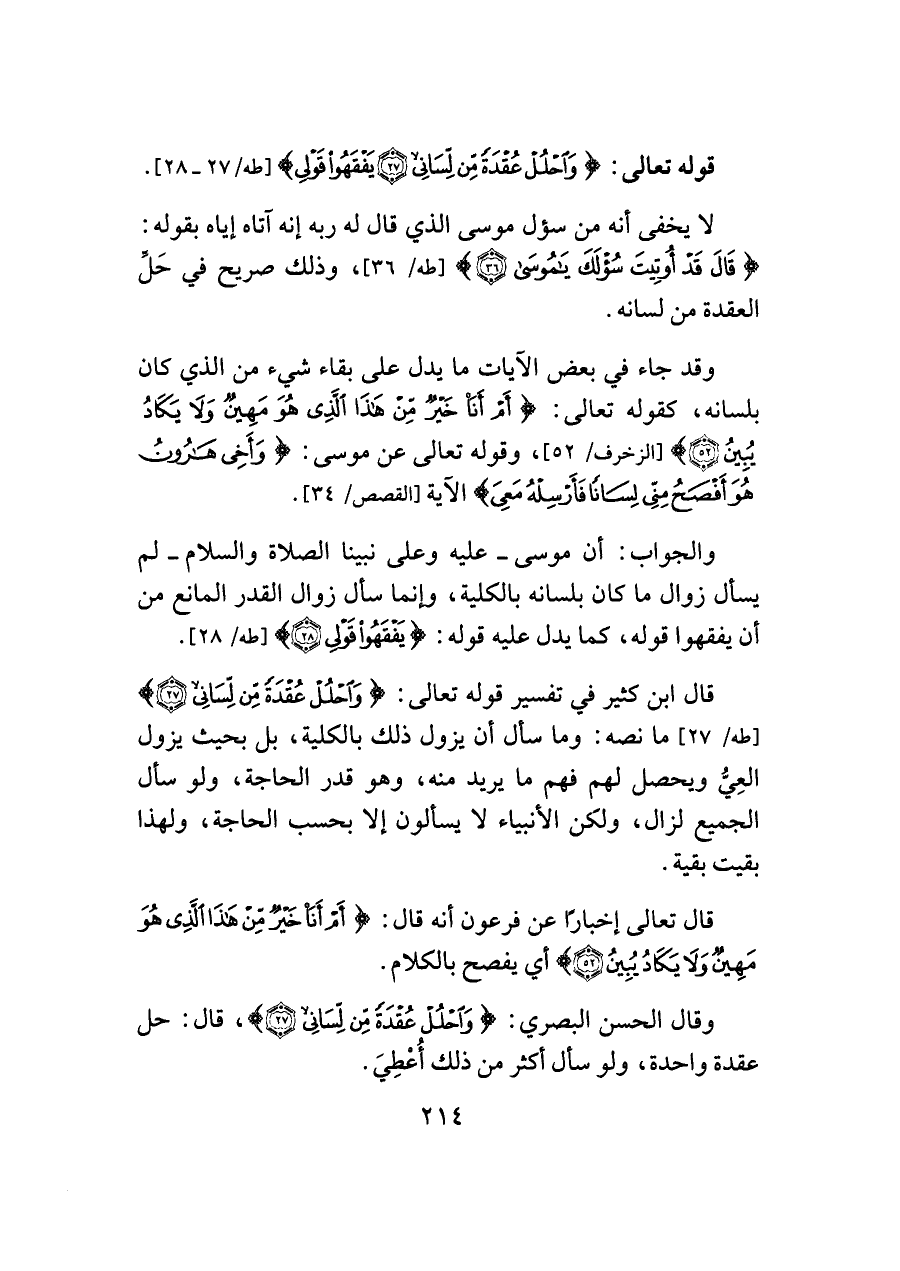 قوله تعالى: ﴿ وَٱحۡلُلۡ عُقۡدَةٗ مِّن لِّسَانِي ٢٧ يَفۡقَهُواْ قَوۡلِي﴾ [طه/ ٢٧ ـ ٢٨].
لا يخفى أنه من سؤل موسى الذي قال له ربه إنه آتاه إياه بقوله:
﴿ قَالَ قَدۡ أُوتِيتَ سُؤۡلَكَ يَٰمُوسَىٰ ٣٦ ﴾ [طه/ ٣٦]، وذلك صريح في حَلِّ
العقدة من لسانه.
وقد جاء في بعض الآيات ما يدل على بقاء شيء من الذي كان
بلسانه، كقوله تعالى: ﴿ أَمۡ أَنَا۠ خَيۡرٞ مِّنۡ هَٰذَا ٱلَّذِي هُوَ مَهِينٞ وَلَا يَكَادُ
يُبِينُ ٥٢ ﴾ [الزخرف/ ٥٢]، وقوله تعالى عن موسى: ﴿ وَأَخِي هَٰرُونُ
هُوَ أَفۡصَحُ مِنِّي لِسَانٗا فَأَرۡسِلۡهُ مَعِيَ﴾ الآية [القصص/ ٣٤].
والجواب: أن موسى ـ عليه وعلى نبينا الصلاة والسلام ـ لم
يسأل زوال ما كان بلسانه بالكلية، وإنما سأل زوال القدر المانع من
أن يفقهوا قوله، كما يدل عليه قوله: ﴿ يَفۡقَهُواْ قَوۡلِي ٢٨ ﴾ [طه/ ٢٨].
قال ابن كثير في تفسير قوله تعالى: ﴿ وَٱحۡلُلۡ عُقۡدَةٗ مِّن لِّسَانِي ٢٧ ﴾
[طه/ ٢٧] ما نصه: وما سأل أن يزول ذلك بالكلية، بل بحيث يزول
العِيُّ ويحصل لهم فهم ما يريد منه، وهو قدر الحاجة، ولو سأل
الجميع لزال، ولكن الأنبياء لا يسألون إلا بحسب الحاجة، ولهذا
بقيت بقية.
قال تعالى إخبارًا عن فرعون أنه قال: ﴿ أَمۡ أَنَا۠ خَيۡرٞ مِّنۡ هَٰذَا ٱلَّذِي هُوَ
مَهِينٞ وَلَا يَكَادُ يُبِينُ ٥٢ ﴾ أي يفصح بالكلام.
وقال الحسن البصري: ﴿ وَٱحۡلُلۡ عُقۡدَةٗ مِّن لِّسَانِي ٢٧ ﴾، قال: حل
عقدة واحدة، ولو سأل أكثر من ذلك أُعْطِيَ.
٢١٤